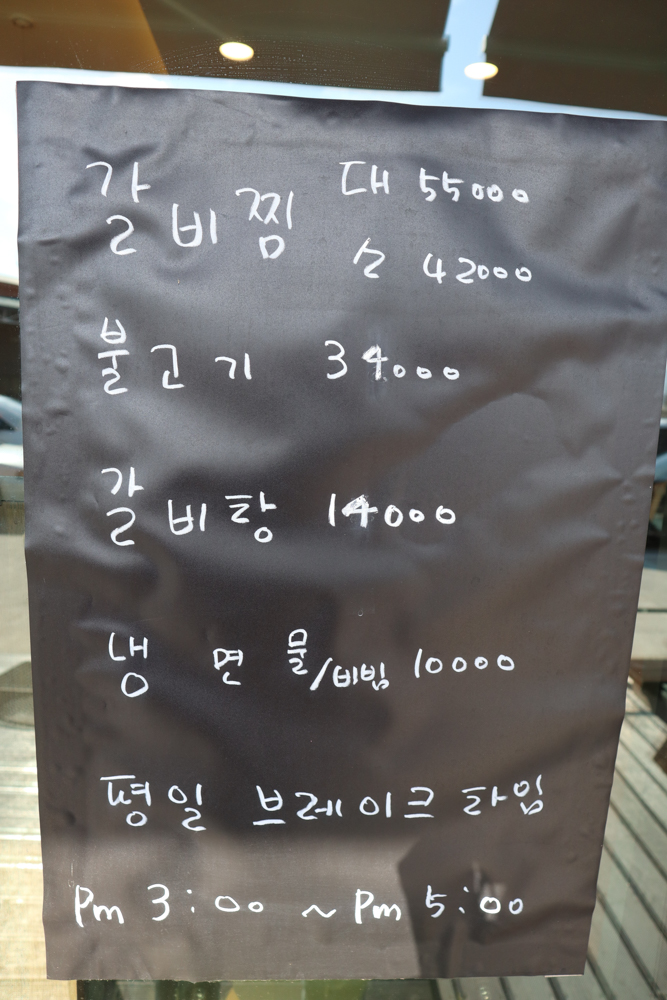 갈비찜 대 55000
소 42000
불고기 34000
갈비탕 14000
냉면 물/비빔 10000
평일 브레이크 타임
Pm 3:00 ~ Pm 5:00